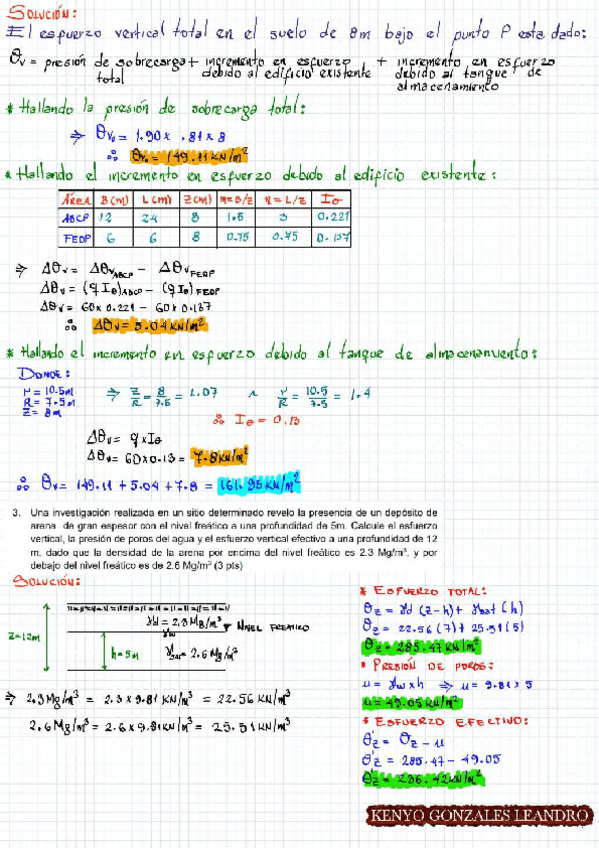 SOLUCIÓN:
El esfuerzo vertical total en el suelo de 8m bajo el punto P esta dado:
θv = presión de sobrecarga + incremento en esfuerzo + incremento en esfuerzo
total debido al edificio existente debido al tanque de
almacenamiento
* Hallando la presión de sobrecarga total:
⇒ θv₀ = 1.90 x .81 x 8
∴ θv₀ = 149.11 KN/m²
* Hallando el incremento en esfuerzo debido al edificio existente:
ÁREA B(m) L(m) Z(m) m=B/z n=L/z Iθ
ABCP 12 24 8 1.5 3 0.221
FEDP 6 6 8 0.75 0.75 0.137
⇒ Δθv = Δθv ABCP − Δθv FEDP
Δθv = (q Iθ) ABCP − (q Iθ) FEDP
Δθv = 60 x 0.221 − 60 x 0.137
∴ Δθv = 5.04 KN/m²
* Hallando el incremento en esfuerzo debido al tanque de almacenamiento:
DONDE:
r = 10.5m ⇒ Z/R = 8/7.5 = 1.07 ∧ r/R = 10.5/7.5 = 1.4
R = 7.5m
Z = 8m
∴ Iθ = 0.13
Δθv = q x Iθ
Δθv = 60 x 0.13 = 7.8 KN/m²
∴ θv = 149.11 + 5.04 + 7.8 = 161.95 KN/m²
3. Una investigación realizada en un sitio determinado revelo la presencia de un depósito de
arena de gran espesor con el nivel freático a una profundidad de 5m. Calcule el esfuerzo
vertical, la presión de poros del agua y el esfuerzo vertical efectivo a una profundidad de 12
m, dado que la densidad de la arena por encima del nivel freático es 2.3 Mg/m³, y por
debajo del nivel freático es de 2.6 Mg/m³ (3 pts)
SOLUCIÓN:
γd = 2.3 Mg/m³
NIVEL FREÁTICO
Z=12m
h=5m
γsat = 2.6 Mg/m³
⇒ 2.3 Mg/m³ = 2.3 x 9.81 KN/m³ = 22.56 KN/m³
2.6 Mg/m³ = 2.6 x 9.81 KN/m³ = 25.51 KN/m³
* ESFUERZO TOTAL:
θz = γd (z-h) + γsat (h)
θz = 22.56 (7) + 25.51 (5)
θz = 285.47 KN/m²
* PRESIÓN DE POROS:
u = γw x h ⇒ u = 9.81 x 5
u = 49.05 KN/m²
* ESFUERZO EFECTIVO:
θ'z = θz − u
θ'z = 285.47 − 49.05
θ'z = 236.42 KN/m²
KENYO GONZALES LEANDRO